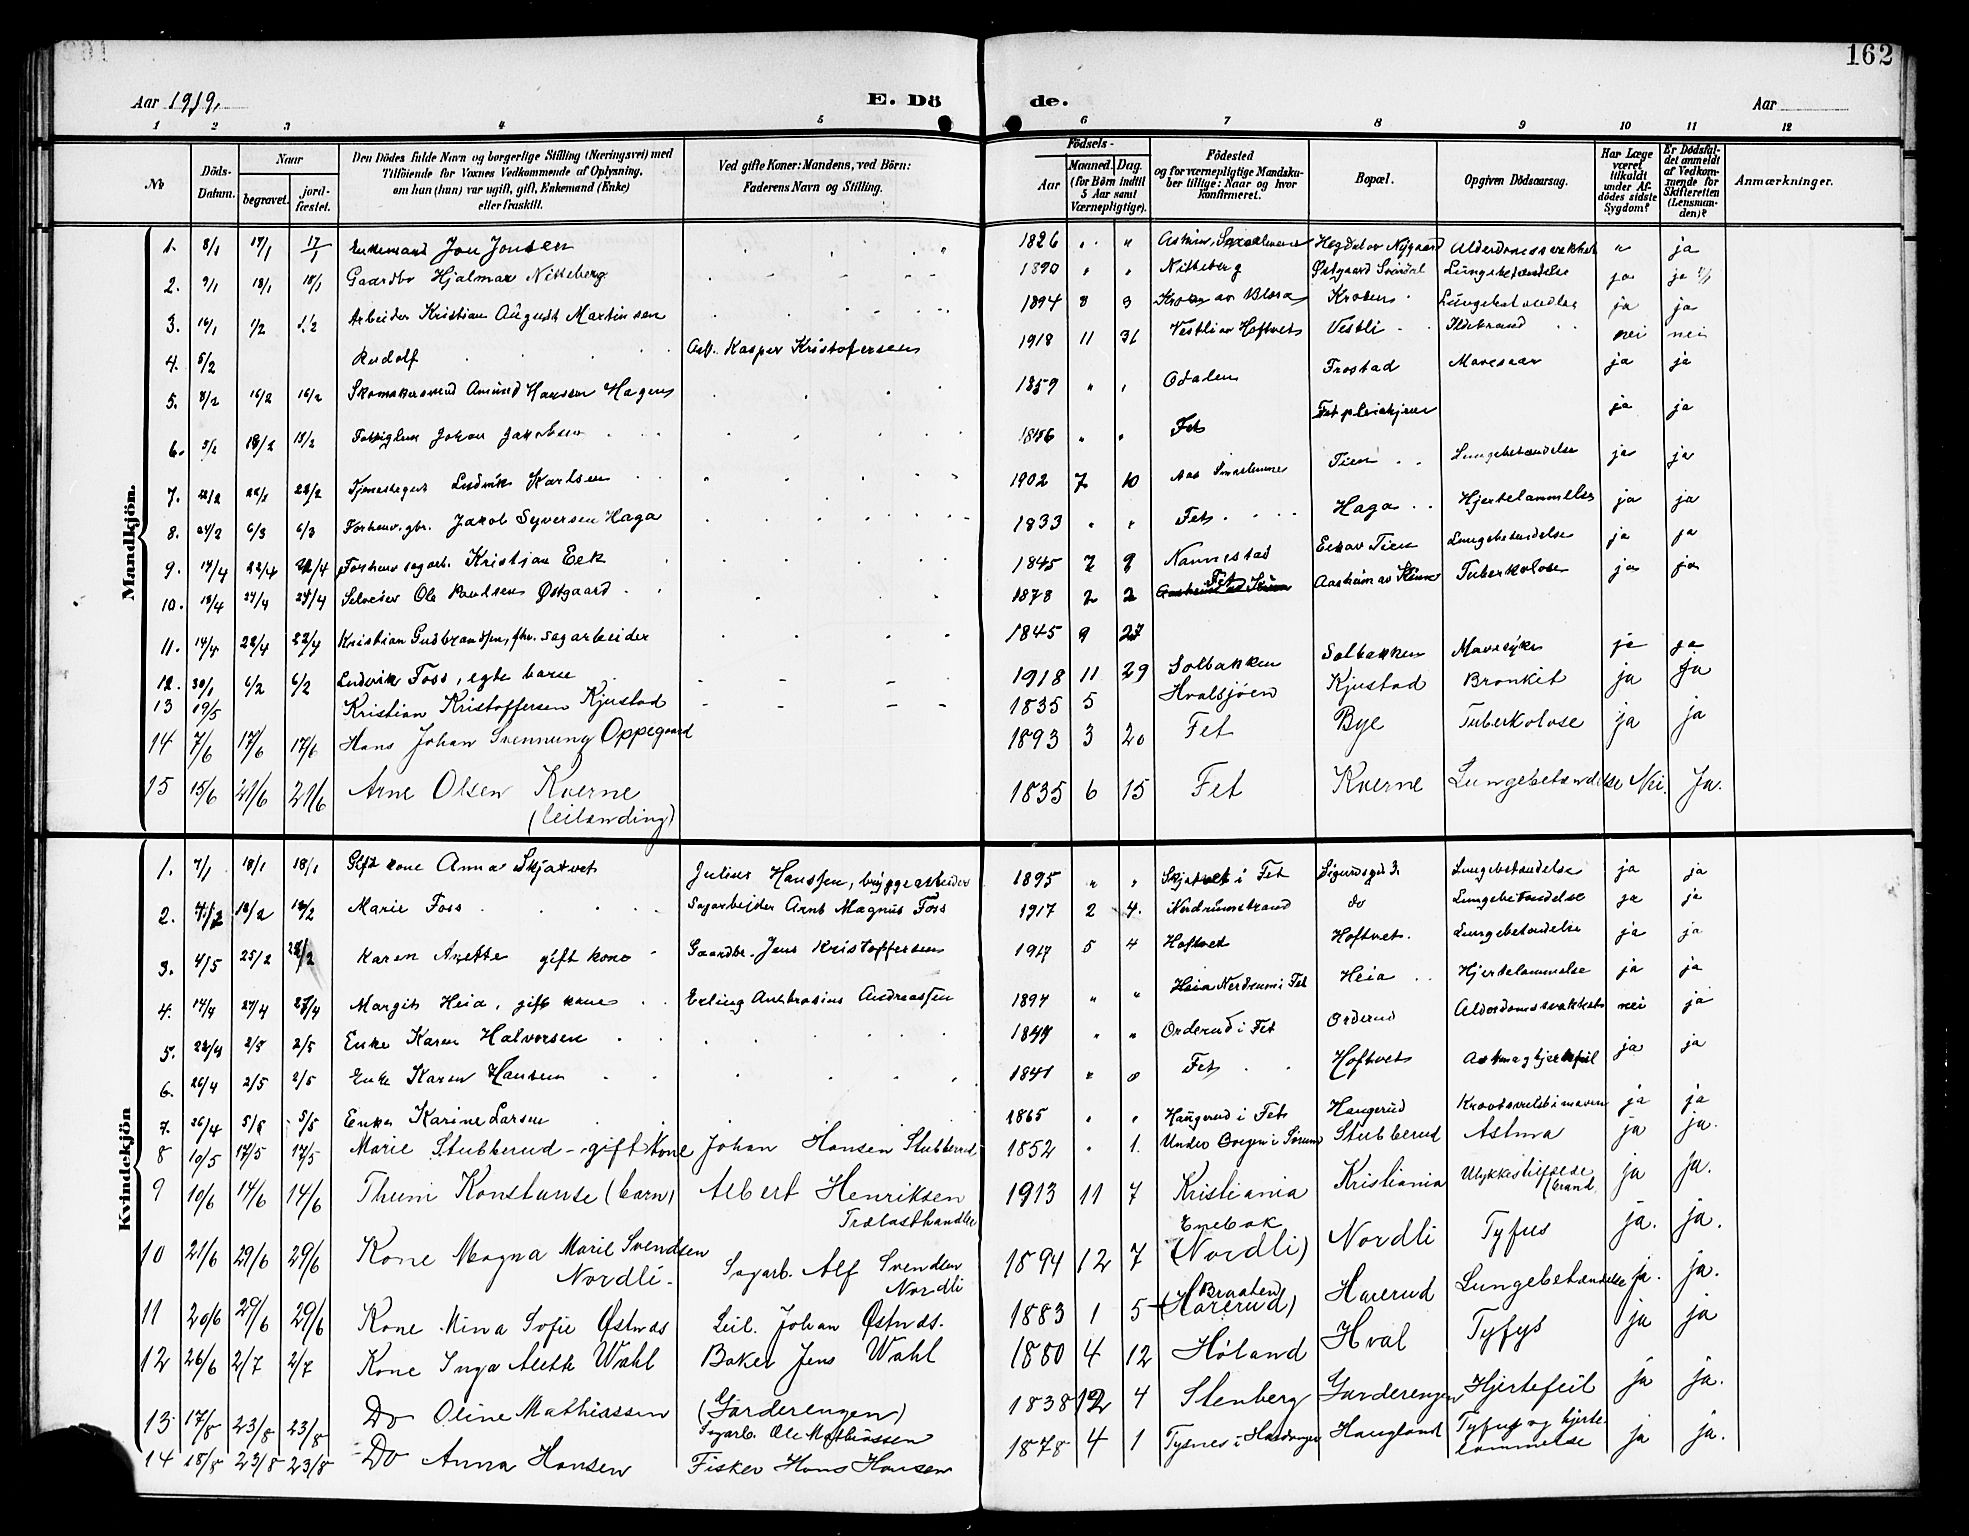 162
Aar 1919. E. Dö de. Aar
1 2 3 4 5 6 7 8 9 10 11 12
No Döds-Datum. Naar begravet. jord-fæstet. Den Dödes fulde Navn og borgerlige Stilling (Næringsvei) med Tilföiende for Voxnes Vedkommende af Oplysning, om han (hun) var ugift, gift, Enkemand (Enke) eller fraskilt. Ved gifte Koner: Mandens, ved Börn: Faderens Navn og Stilling. Födsels- Aar Maaned. Dag. (for Börn indtil 5 Aar samt Værnepligtige). Födested og for værnepligtige Mandskaber tillige: Naar og hvor konfirmeret. Bopæl. Opgiven Dödsaarsag. Har Læge været tilkaldt under Afdödes sidste Sygdom? Er Dödsfaldet anmeldt af Vedkommende for Skifteretten (Lensmanden)? Anmærkninger.
Mandkjön.
1. 8/1 17/1 17/1 Enkemand Jon Jonsen 1826 " " Askim, Smaalenene Hegdal av Nygaard Alderdomssvakhet " ja
2. 9/1 18/1 18/1 Gaardbr Hjalmar Nitteberg 1890 " " Nitteberg Østgaard Svindal Lungebetændelse ja ja
3. 16/1 1/2 1/2 Arbeider Kristian August Martinsen 1894 8 9 Kroken av Blora Kroken Lungebetændelse ja ja
4. 5/2 Rudolf Arb. Kasper Kristofersen 1918 11 31 Vestli av Hoftvet Vestli Ildebrand nei nei
5. 8/2 16/2 16/2 Skomakersvend Amund Hanssen Hagen 1859 " " Odalen Frostad Mavesaar ja ja
6. 5/2 18/2 18/2 Fattiglem Johan Jakobsen 1846 " " Fet Fet pleiehjem ja ja
7. 22/2 28/2 Tjenestegut Ludvik Karlsen 1902 7 10 Aas Smaalenene Tien Lungebetændelse ja ja
8. 24/2 6/3 6/3 Forhenv. gbr. Jakob Syversen Haga 1833 " " Fet Haga Hjertelammelse ja ja
9. 17/4 22/4 22/4 Forhenv sagarb. Kristian Eek 1845 7 9 Nannestad Eek av Tien Lungebetændelse ja ja
10. 18/4 24/4 24/4 Selveier Ole Paulsen Østgaard 1878 2 2 Fet Aasheim av Tuberkolose ja ja
11. 14/4 22/4 22/4 Kristian Gudbrandsen, fhv. sagarbeider 1845 9 27
12. 30/1 6/2 6/2 Ludvik Foss, egte barn 1918 11 29 Solbakken Solbakken Mavesyke ja ja
13 19/5 Kristian Kristoffersen Kjustad 1835 5 Hvalsjøen Kjustad Bronkit ja ja
14 7/6 17/6 17/6 Hans Johan Svennung Oppegaard 1893 3 20 Fet Bye Tuberkolose ja ja
15 15/6 21/6 21/6 Arne Olsen Kverne 1835 6 15 Fet Kverne Lungebetændelse Nei. Ja.
(leilænding)
Kvindekjön
1. 7/1 18/1 18/1 Gift kone Anna Skjatvet Julius Hanssen, bryggearbeider 1895 " " Skjatvet i Fet Sigurdsgd 3. Lungebetændelse ja ja
2. 18/2 18/2 Marie Foss Sagarbeider Arnt Magnus Foss 1917 2 4. Nordrumstrand do Lungebetændelse ja ja
3. 4/5 25/2 Karen Anette gift kone Gaardbr. Jens Kristoffersen 1917 5 4 Hoftvet Hoftvet. Lungebetændelse ja ja
4. 17/4 27/4 27/4 Margit Heia, gift kone Erling Ambrosius Andreassen 1897 " " Heia Nerdrum i Fet Heia Hjertelammelse ja ja
5. 22/4 2/5 2/5 Enke Karen Halvorsen 1849 " " Orderud i Fet Orderud Alderdomssvakhet nei ja
6. 26/4 2/5 2/5 Enke Karen Hansen 1841 " " Fet Hoftvet Astma og hjertefeil ja ja
7. 26/4 5/5 5/5 Enke Karine Larsen 1865 " " Haugerud i Fet Haugerud Kræftsvulst i maven ja ja
8 10/5 17/5 17/5 Marie Stubberud - gift Kone Johan Hansen Stubberud 1852 " 1. Under i Sørum Stubberud Astma ja ja.
9 10/6 14/6 14/6 Thuni Konstanse (barn) Albert Henriksen 1913 11 7 Kristiania Kristiania Ulykkestilfælde ja ja.
Trælasthandler (brand)
10 21/6 29/6 29/6 Kone Magna Marie Svendsen Nordli - Sagarb. Alf Svendsen Nordli 1894 12 7 Enebak (Nordli) Nordli Tyfus ja. ja.
11 20/6 29/6 29/6 Kone Mina Sofie Østnas Leil. Johan Østnas. 1883 1 5 Braaten (Harerud) Harerud Lungebetændelse ja. ja.
12 26/6 2/7 2/7 Kone Inga Alette Wahl Baker Jens Wahl 1880 4 12 Høland Hval Tyfys ja ja
13 17/8 23/8 23/8 Do Oline Mathiassen (Garderengen) 1838 12 4 Stenberg Garderengen Hjertefeil ja ja.
Sagarb. Ole Mathiassen
14 18/8 23/8 23/8 Do Anna Hansen Fisker Hans Hansen 1878 4 1 Tysnes i Hardanger Haugland Tyfus og hjertelammelse ja ja.